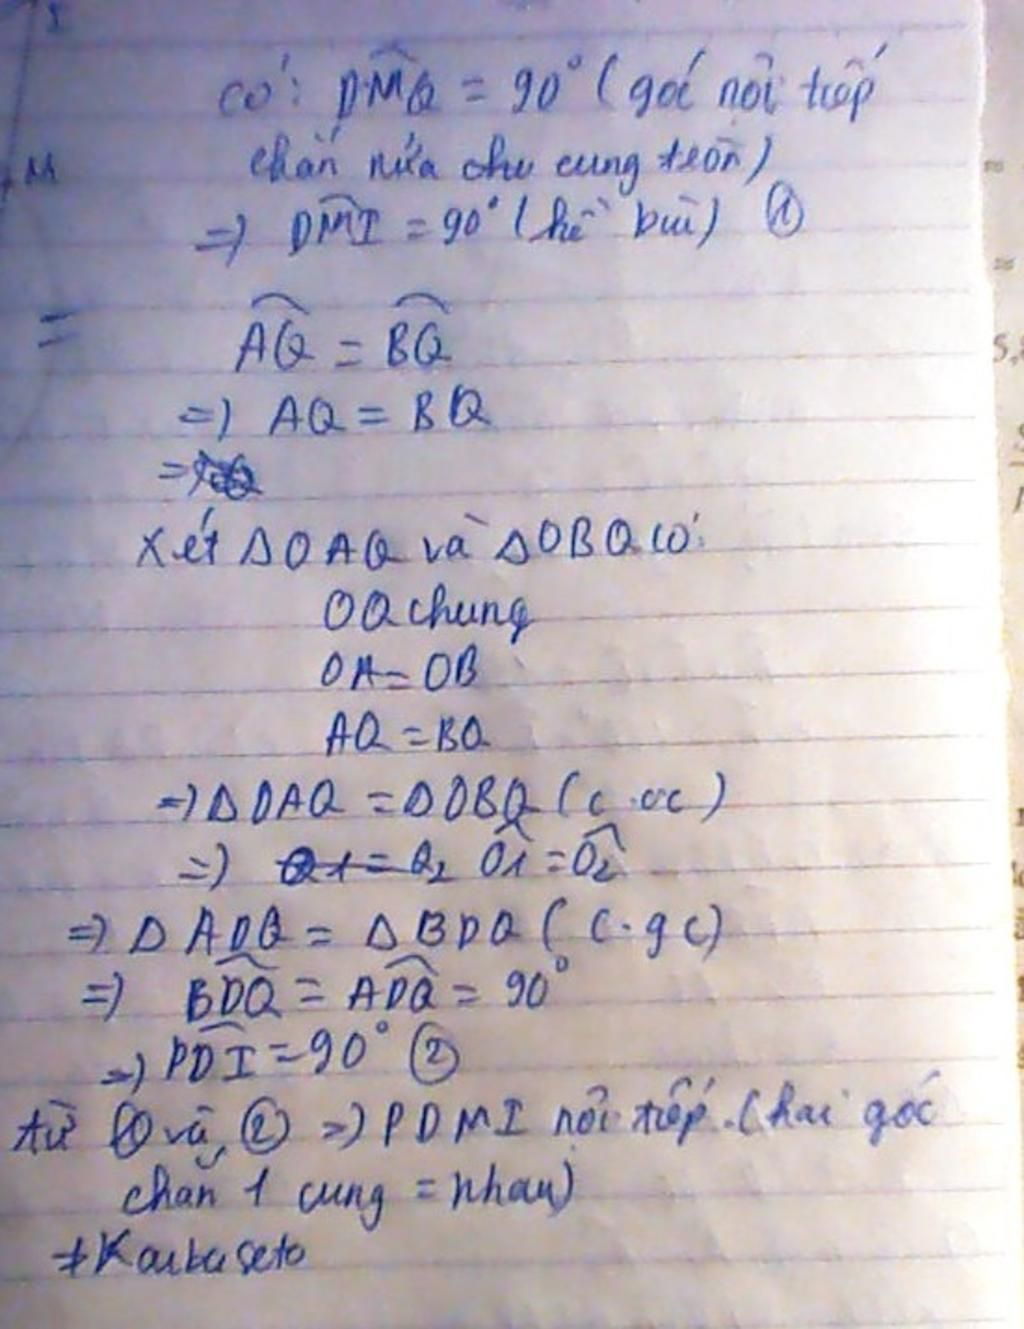 I
M
có: DMQ = 90° (góc nội tiếp
chắn nửa chu cung tròn)
=) DMI = 90° (kề bù) ①
=
AQ = BQ
=) AQ = BQ
=)
Xét ΔOAQ và ΔOBQ có:
OQ chung
OA = OB
AQ = BQ
=) ΔOAQ = ΔOBQ (c.c.c)
=) Q1 = Q2 O1 = O2
=) ΔADQ = ΔBDQ (c.g c)
=) BDQ = ADQ = 90°
=) PDI = 90° ②
từ ① và ② =) PDMI nội tiếp. (hai góc
chắn 1 cung = nhau)
+Kaitaseto